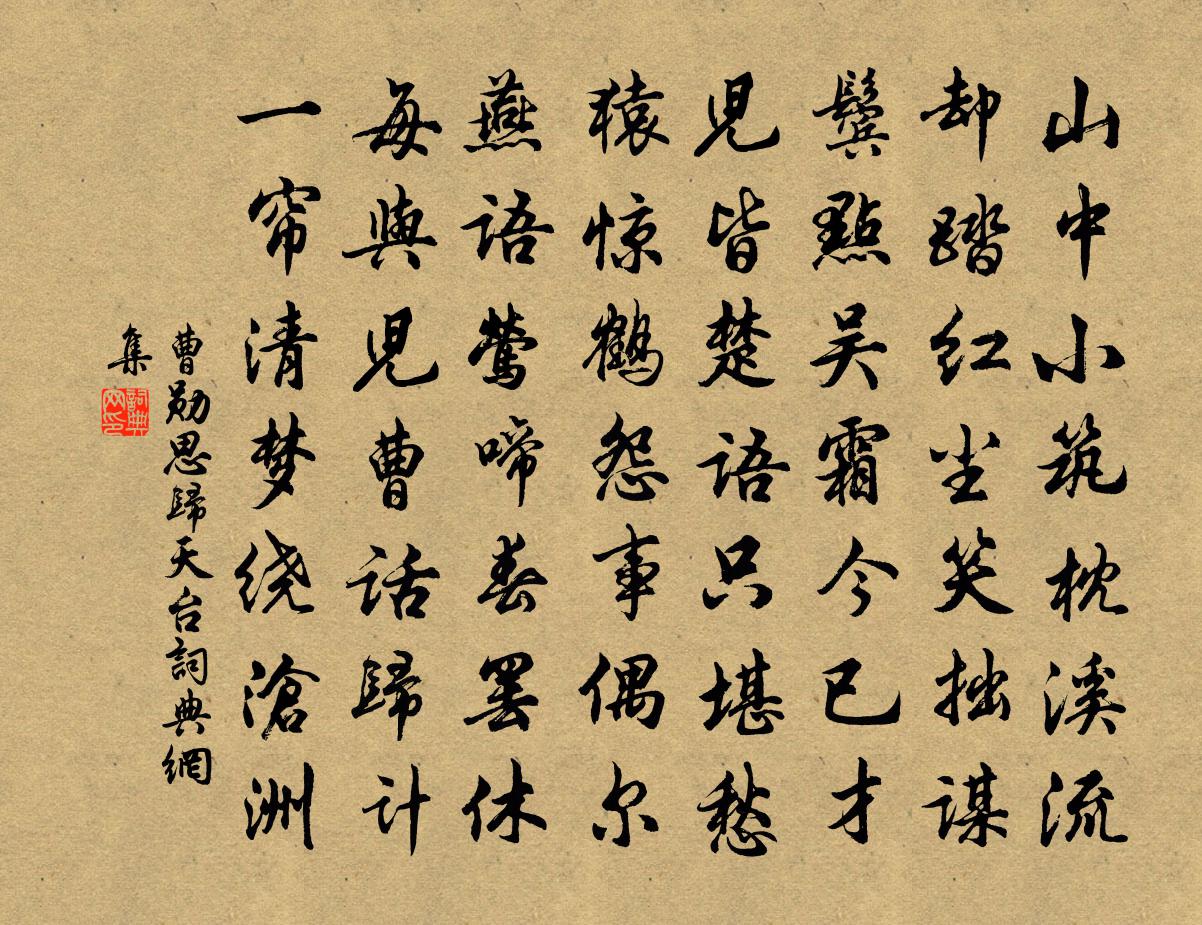 山中小筑枕溪流
却踏红尘笑拙谋
鬓點吴霜今已才
見皆楚语只堪愁
猿惊鹤怨事偶尔
燕语莺啼春罢休
每與兒曹话歸计
一帘清梦绕滄洲
曹勋思歸天台詞典網
集
詞典
网印